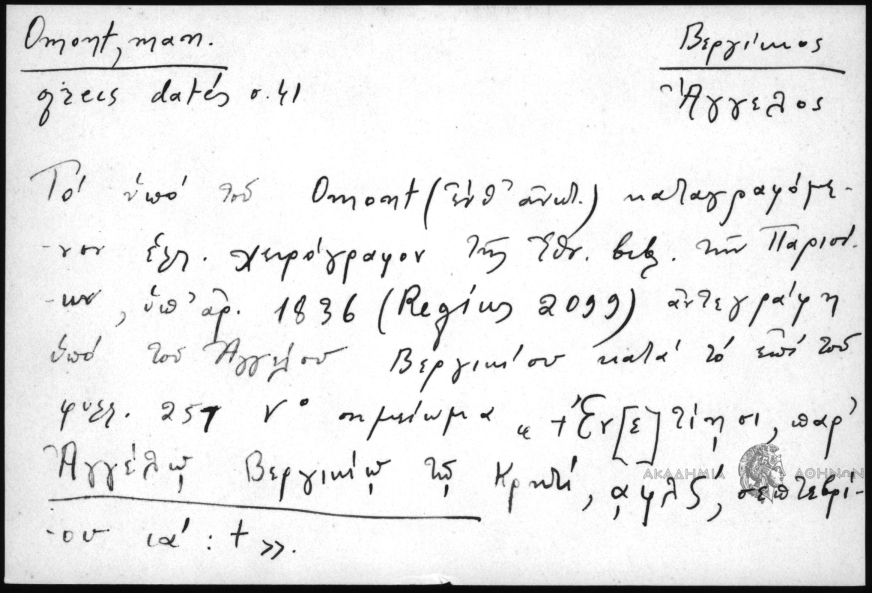 Omont, man.
grecs datés σ. 41
Βεργίκιος
Ἄγγελος
Τό ὑπό τοῦ Omont (ἔνθ' ἀνωτ.) καταγραφόμε-
-νον ἑλλ. χειρόγραφον τῆς Ἐθν. βιβλ. τῶν Παρισί-
-ων, ὑπ' ἀρ. 1836 (Regius 2099) ἀντεγράφη
ὑπό τοῦ Ἀγγέλου Βεργικίου κατά τό ἐπί τοῦ
φυλλ. 257 v° σημείωμα « + Ἐν[ε]τίησι, παρ'
Ἀγγέλῳ Βεργικίῳ τῷ Κρητί, ͵αφλς΄, σεπτεβρί-
-ου ια΄ : + ».
ΑΚΑΔΗΜΙΑ ΑΘΗΝΩΝ